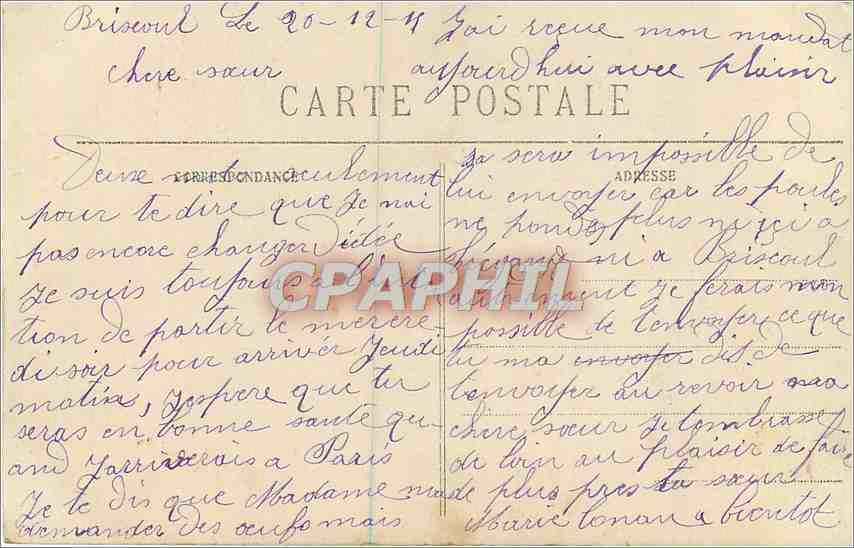 Briscoul Le 20-12-11 J'ai reçue mon mandat
chere sœur aujourd'hui avec plaisir
CARTE POSTALE
CORRESPONDANCE
ADRESSE
Deux mots seulement
pour te dire que Je n'ai
pas encore changer d'idée
Je suis toujours a l'inten
tion de partir le mercre-
di soir pour arriver Jeudi
matin, J'espere que tu
seras en bonne santé qu-
and J'arriverais a Paris
Je te dis que Madame ma
demander des œufs mais
sa sera impossible de
lui envoyer car les poules
ne ponds plus ni içi a
ni a Briscoul
autrement je ferais mon
possible te t'envoyer ce que
tu ma envoyer dis de
t'envoyer au revoir ma
chere sœur Je t'embrasse
de loin au plaisir de faire
de plus pres ta sœur
Marie Conan a bientot
CPAPHIL